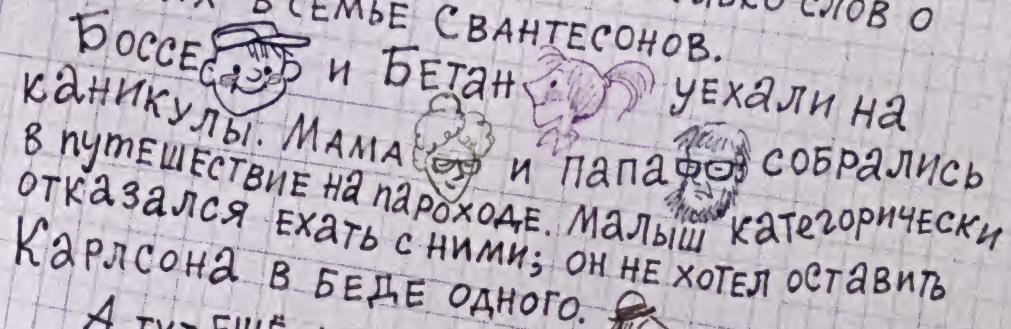 В СЕМЬЕ СВАНТЕСОНОВ. СЛОВ О
БОССЕ И БЕТАН УЕХАЛИ НА
КАНИКУЛЫ. МАМА И ПАПА СОБРАЛИСЬ
В ПУТЕШЕСТВИЕ НА ПАРОХОДЕ. МАЛЫШ КАТЕГОРИЧЕСКИ
ОТКАЗАЛСЯ ЕХАТЬ С НИМИ; ОН НЕ ХОТЕЛ ОСТАВИТЬ
КАРЛСОНА В БЕДЕ ОДНОГО.
А ТУТ ЕЩЁ